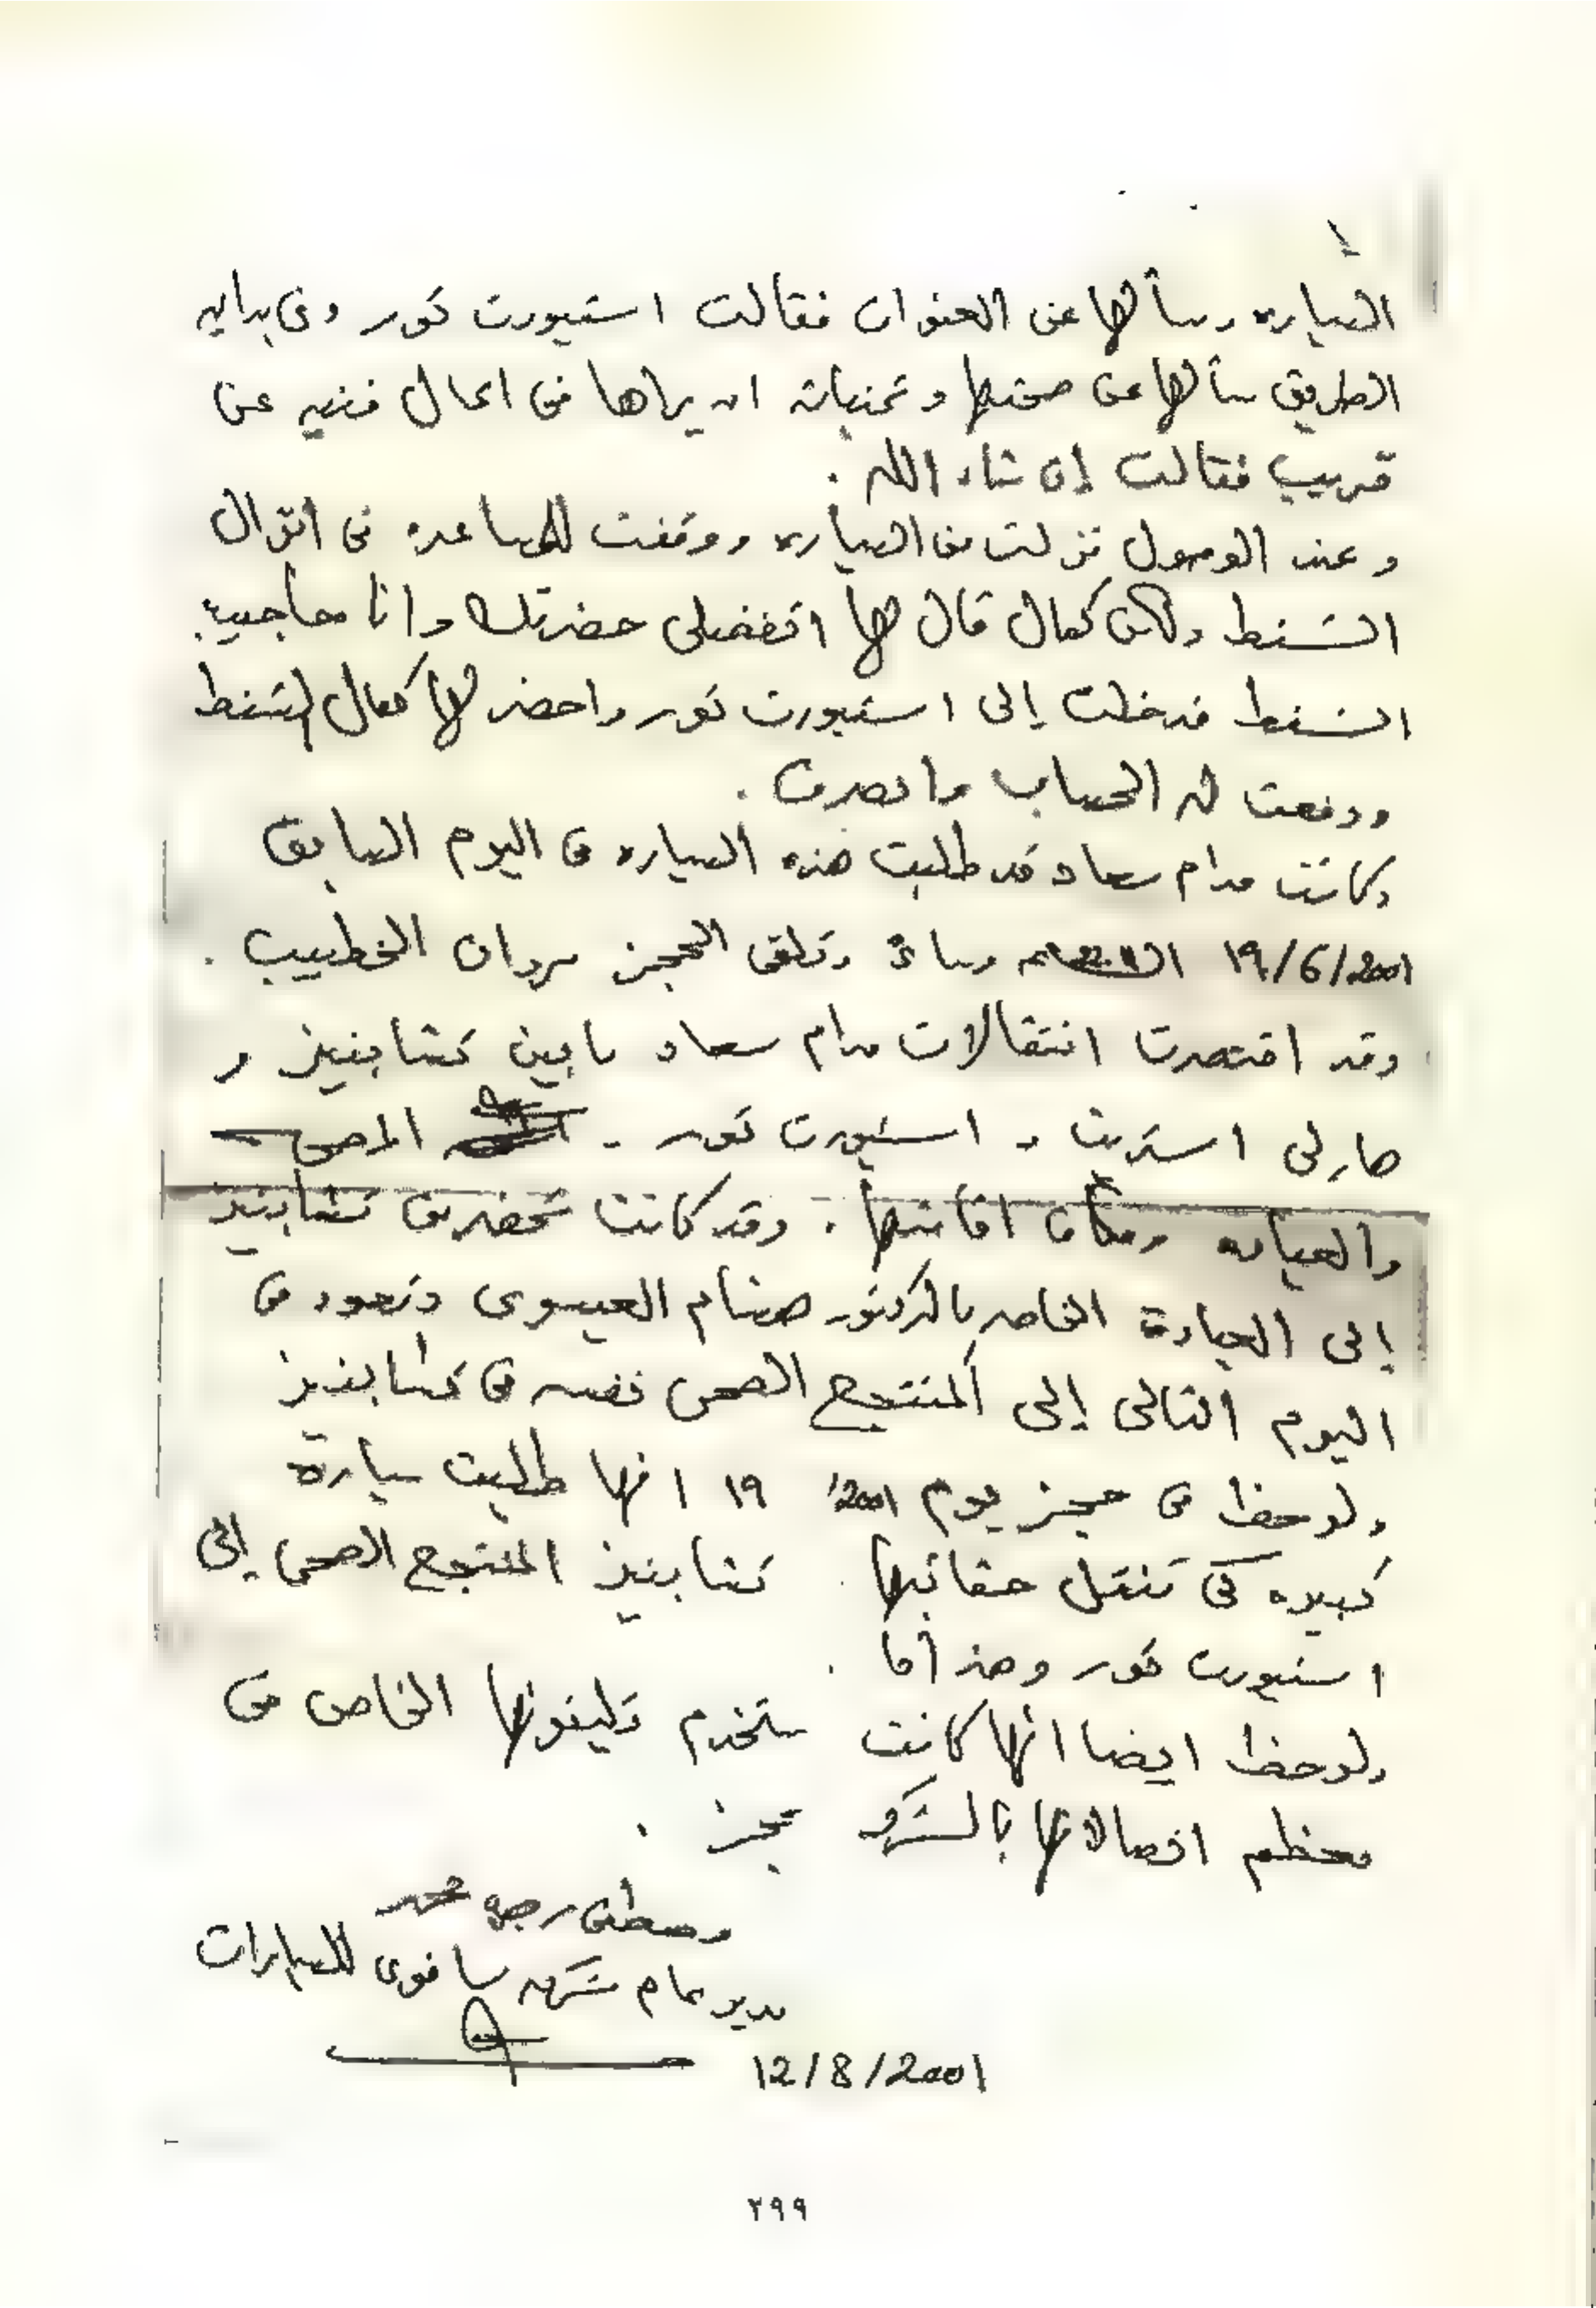 السياره وسألها عن العنوان فقالت استيورت تور وفى بدايه
الطريق سألها عن صحتها وتمنياته ان يراها فى اعمال فنيه عن
قريب فقالت إن شاء الله .
وعند الوصول نزلت من السياره ووقفت للمساعده فى انزال
الشنط ولكن كمال قال لها اتفضلى حضرتك وانا حاجيب
الشنط فدخلت إلى استيورت تور واحضر لها كمال الشنط
ودفعت له الحساب وانصرف .
وكانت مدام سعاد قد طلبت هذه السياره فى اليوم السابق
19/6/2001 مساءً وتلقى الحجز مروان الخطيب .
وقد اقتصرت انتقالات مدام سعاد ما بين تشابنيز و
هارلى استريت - استيورت تور - المصحى -
والعياده ومكان اقامتها . وقد كانت تحضر من تشابنيز
إلى العيادة الخاصه بالدكتور هشام العيسوى وتعود فى
اليوم التالى إلى المنتجع الصحى نفسه فى تشابنيز
ولوحظ فى حجز يوم ١٩ 2001 انها طلبت سيارة
كبيره كى تنقل حقائبها . تشابنيز المنتجع الصحى إلى
استيورت تور وهذا ما .
ولوحظ ايضا انها كانت ستخدم تليفونها الخاص فى
معظم اتصالاتها بالشركه حجز .
مصطفى رجب محمد
مدير عام شركه سافوى للسيارات
12/8/2001
٢٩٩